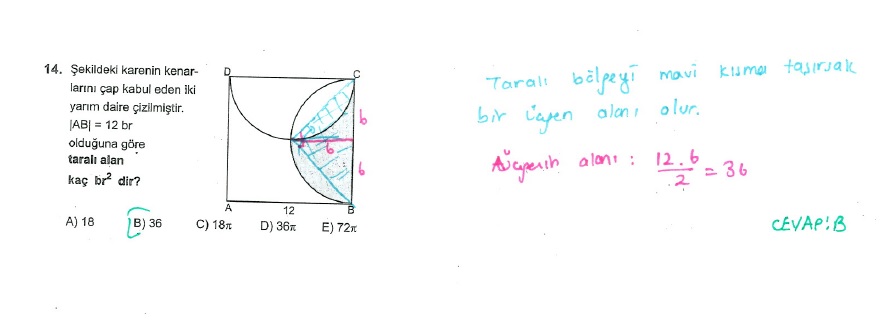 14. Şekildeki karenin kenar-
larını çap kabul eden iki
yarım daire çizilmiştir.
|AB| = 12 br
olduğuna göre
taralı alan
kaç br² dir?
D
C
6
6
6
A
12
B
A) 18 B) 36 C) 18π D) 36π E) 72π
Taralı bölgeyi mavi kısma taşırsak
bir üçgen alanı olur.
Üçgenin alanı : 12.6 / 2 = 36
CEVAP:B